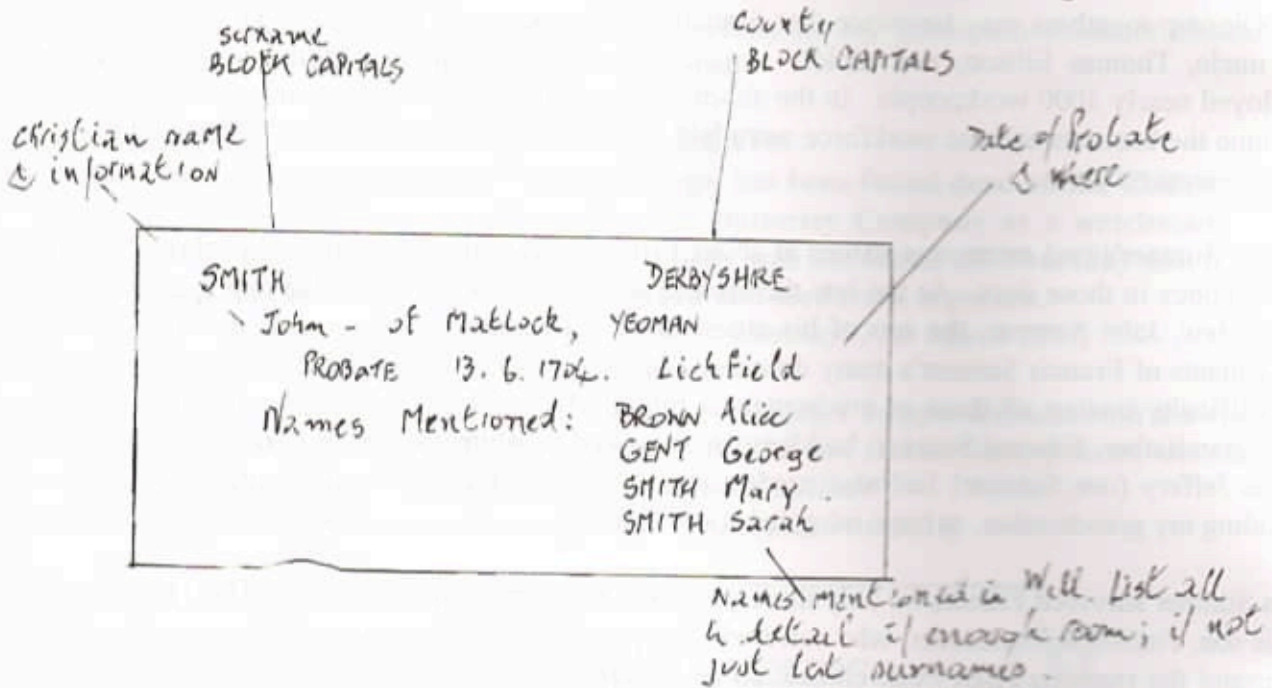 surname
BLOCK CAPITALS
County
BLOCK CAPITALS
Christian name
& information
Date of Probate
& where
SMITH DERBYSHIRE
John - of Matlock, YEOMAN
PROBATE 13. 6. 1704. Lichfield
Names Mentioned: BROWN Alice
GENT George
SMITH Mary.
SMITH Sarah
Names mentioned in Will. List all
in detail if enough room; if not
just list surnames